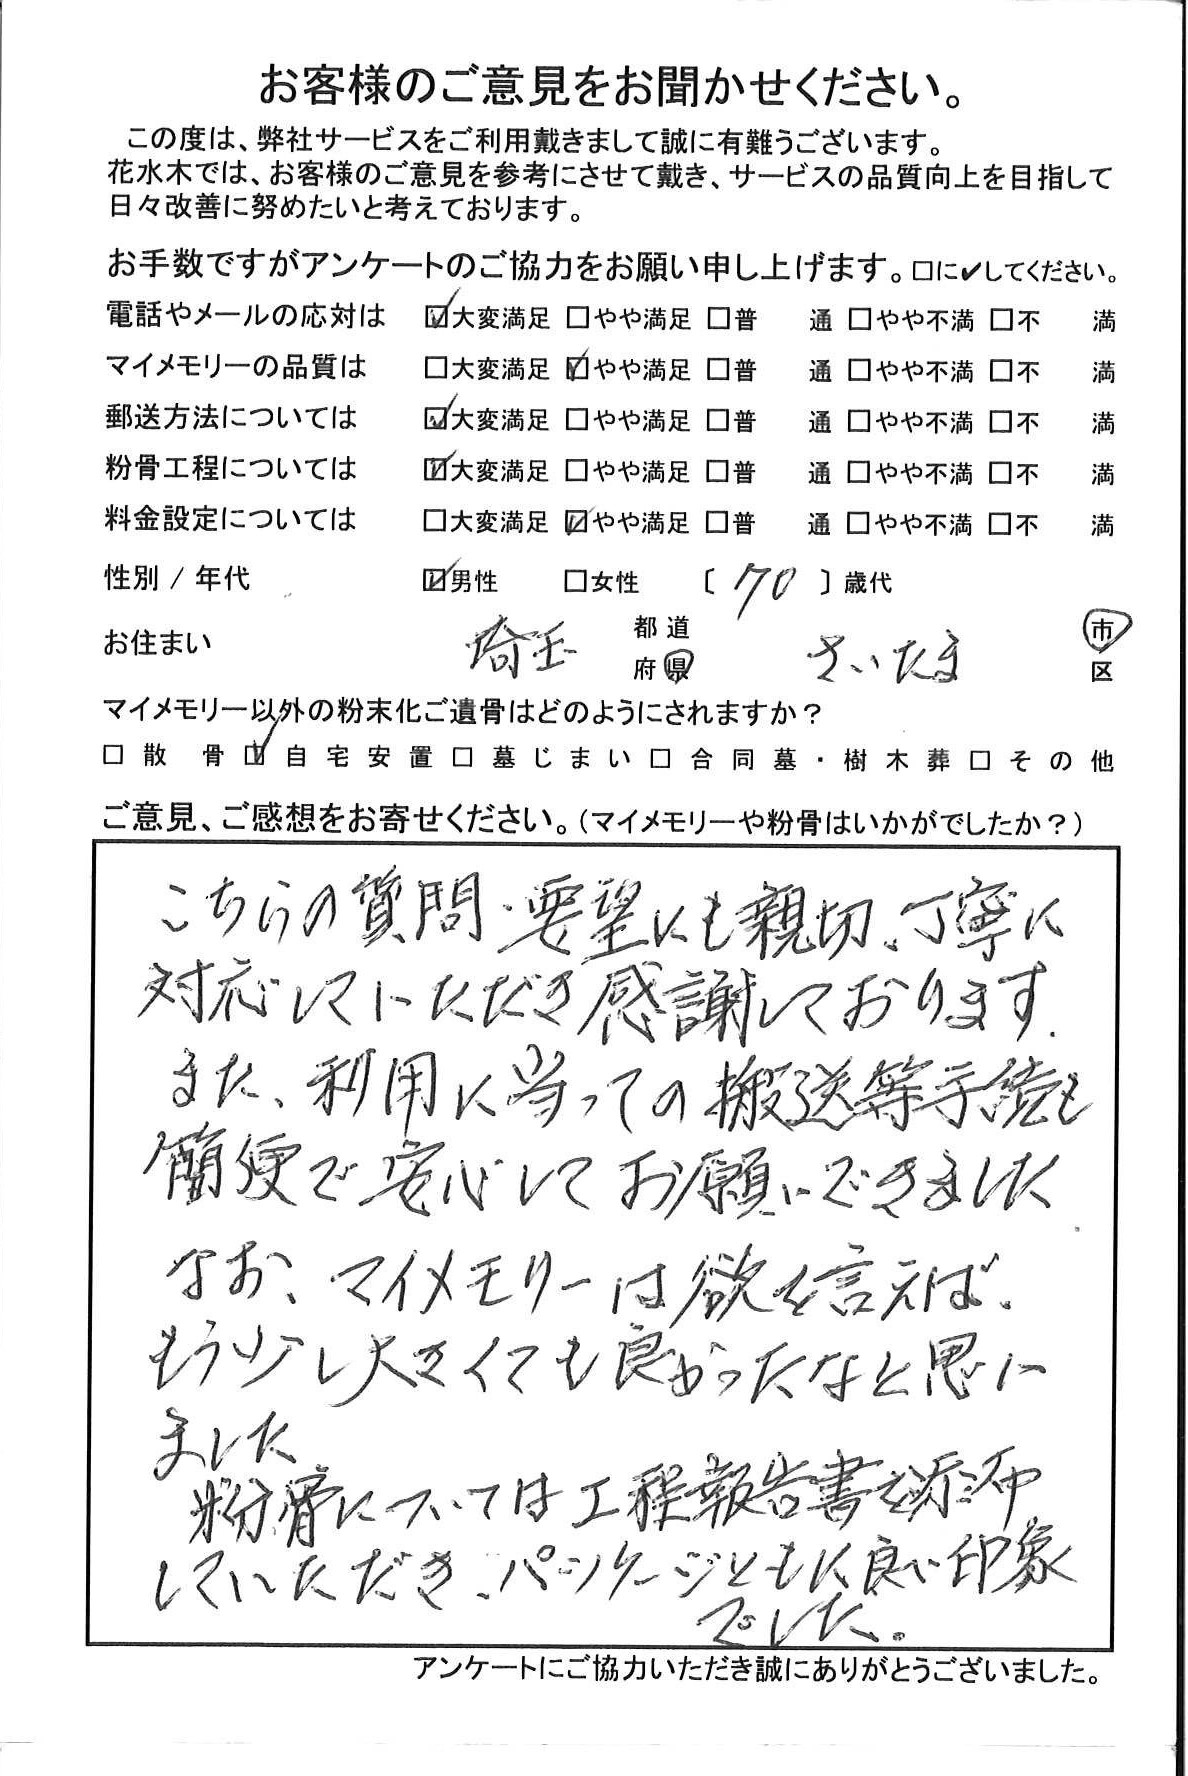 お客様のご意見をお聞かせください。
この度は、弊社サービスをご利用戴きまして誠に有難うございます。
花水木では、お客様のご意見を参考にさせて戴き、サービスの品質向上を目指して
日々改善に努めたいと考えております。
お手数ですがアンケートのご協力をお願い申し上げます。□に✔してください。
電話やメールの応対は ☑大変満足 □やや満足 □普 通 □やや不満 □不 満
マイメモリーの品質は □大変満足 ☑やや満足 □普 通 □やや不満 □不 満
郵送方法については ☑大変満足 □やや満足 □普 通 □やや不満 □不 満
粉骨工程については ☑大変満足 □やや満足 □普 通 □やや不満 □不 満
料金設定については □大変満足 ☑やや満足 □普 通 □やや不満 □不 満
性別 / 年代 ☑男性 □女性 〔 70 〕歳代
お住まい 埼玉 都道府県 さいたま 市区
マイメモリー以外の粉末化ご遺骨はどのようにされますか？
□散 骨 ☑自宅安置 □墓じまい □合同墓・樹木葬 □その他
ご意見、ご感想をお寄せください。（マイメモリーや粉骨はいかがでしたか？）
こちらの質問・要望にも親切、丁寧に
対応していただき感謝しております.
また、利用に当っての搬送等手続も
簡便で安心してお願いできました
なお、マイメモリーは欲を言えば、
もう少し大きくても良かったなと思い
ました
粉骨については工程報告書を添付
していただき、パッケージともに良い印象
でした。
アンケートにご協力いただき誠にありがとうございました。